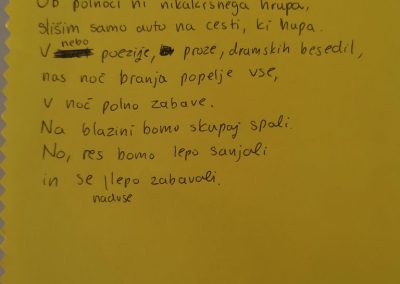 Ob polnoči ni nikakršnega hrupa,
slišim samo avto na cesti, ki hupa.
V nebo poezije, proze, dramskih besedil,
nas noč branja popelje vse,
v noč polno zabave.
Na blazini bomo skupaj spali.
No, res bomo lepo sanjali
in se lepo zabavali.
naduse